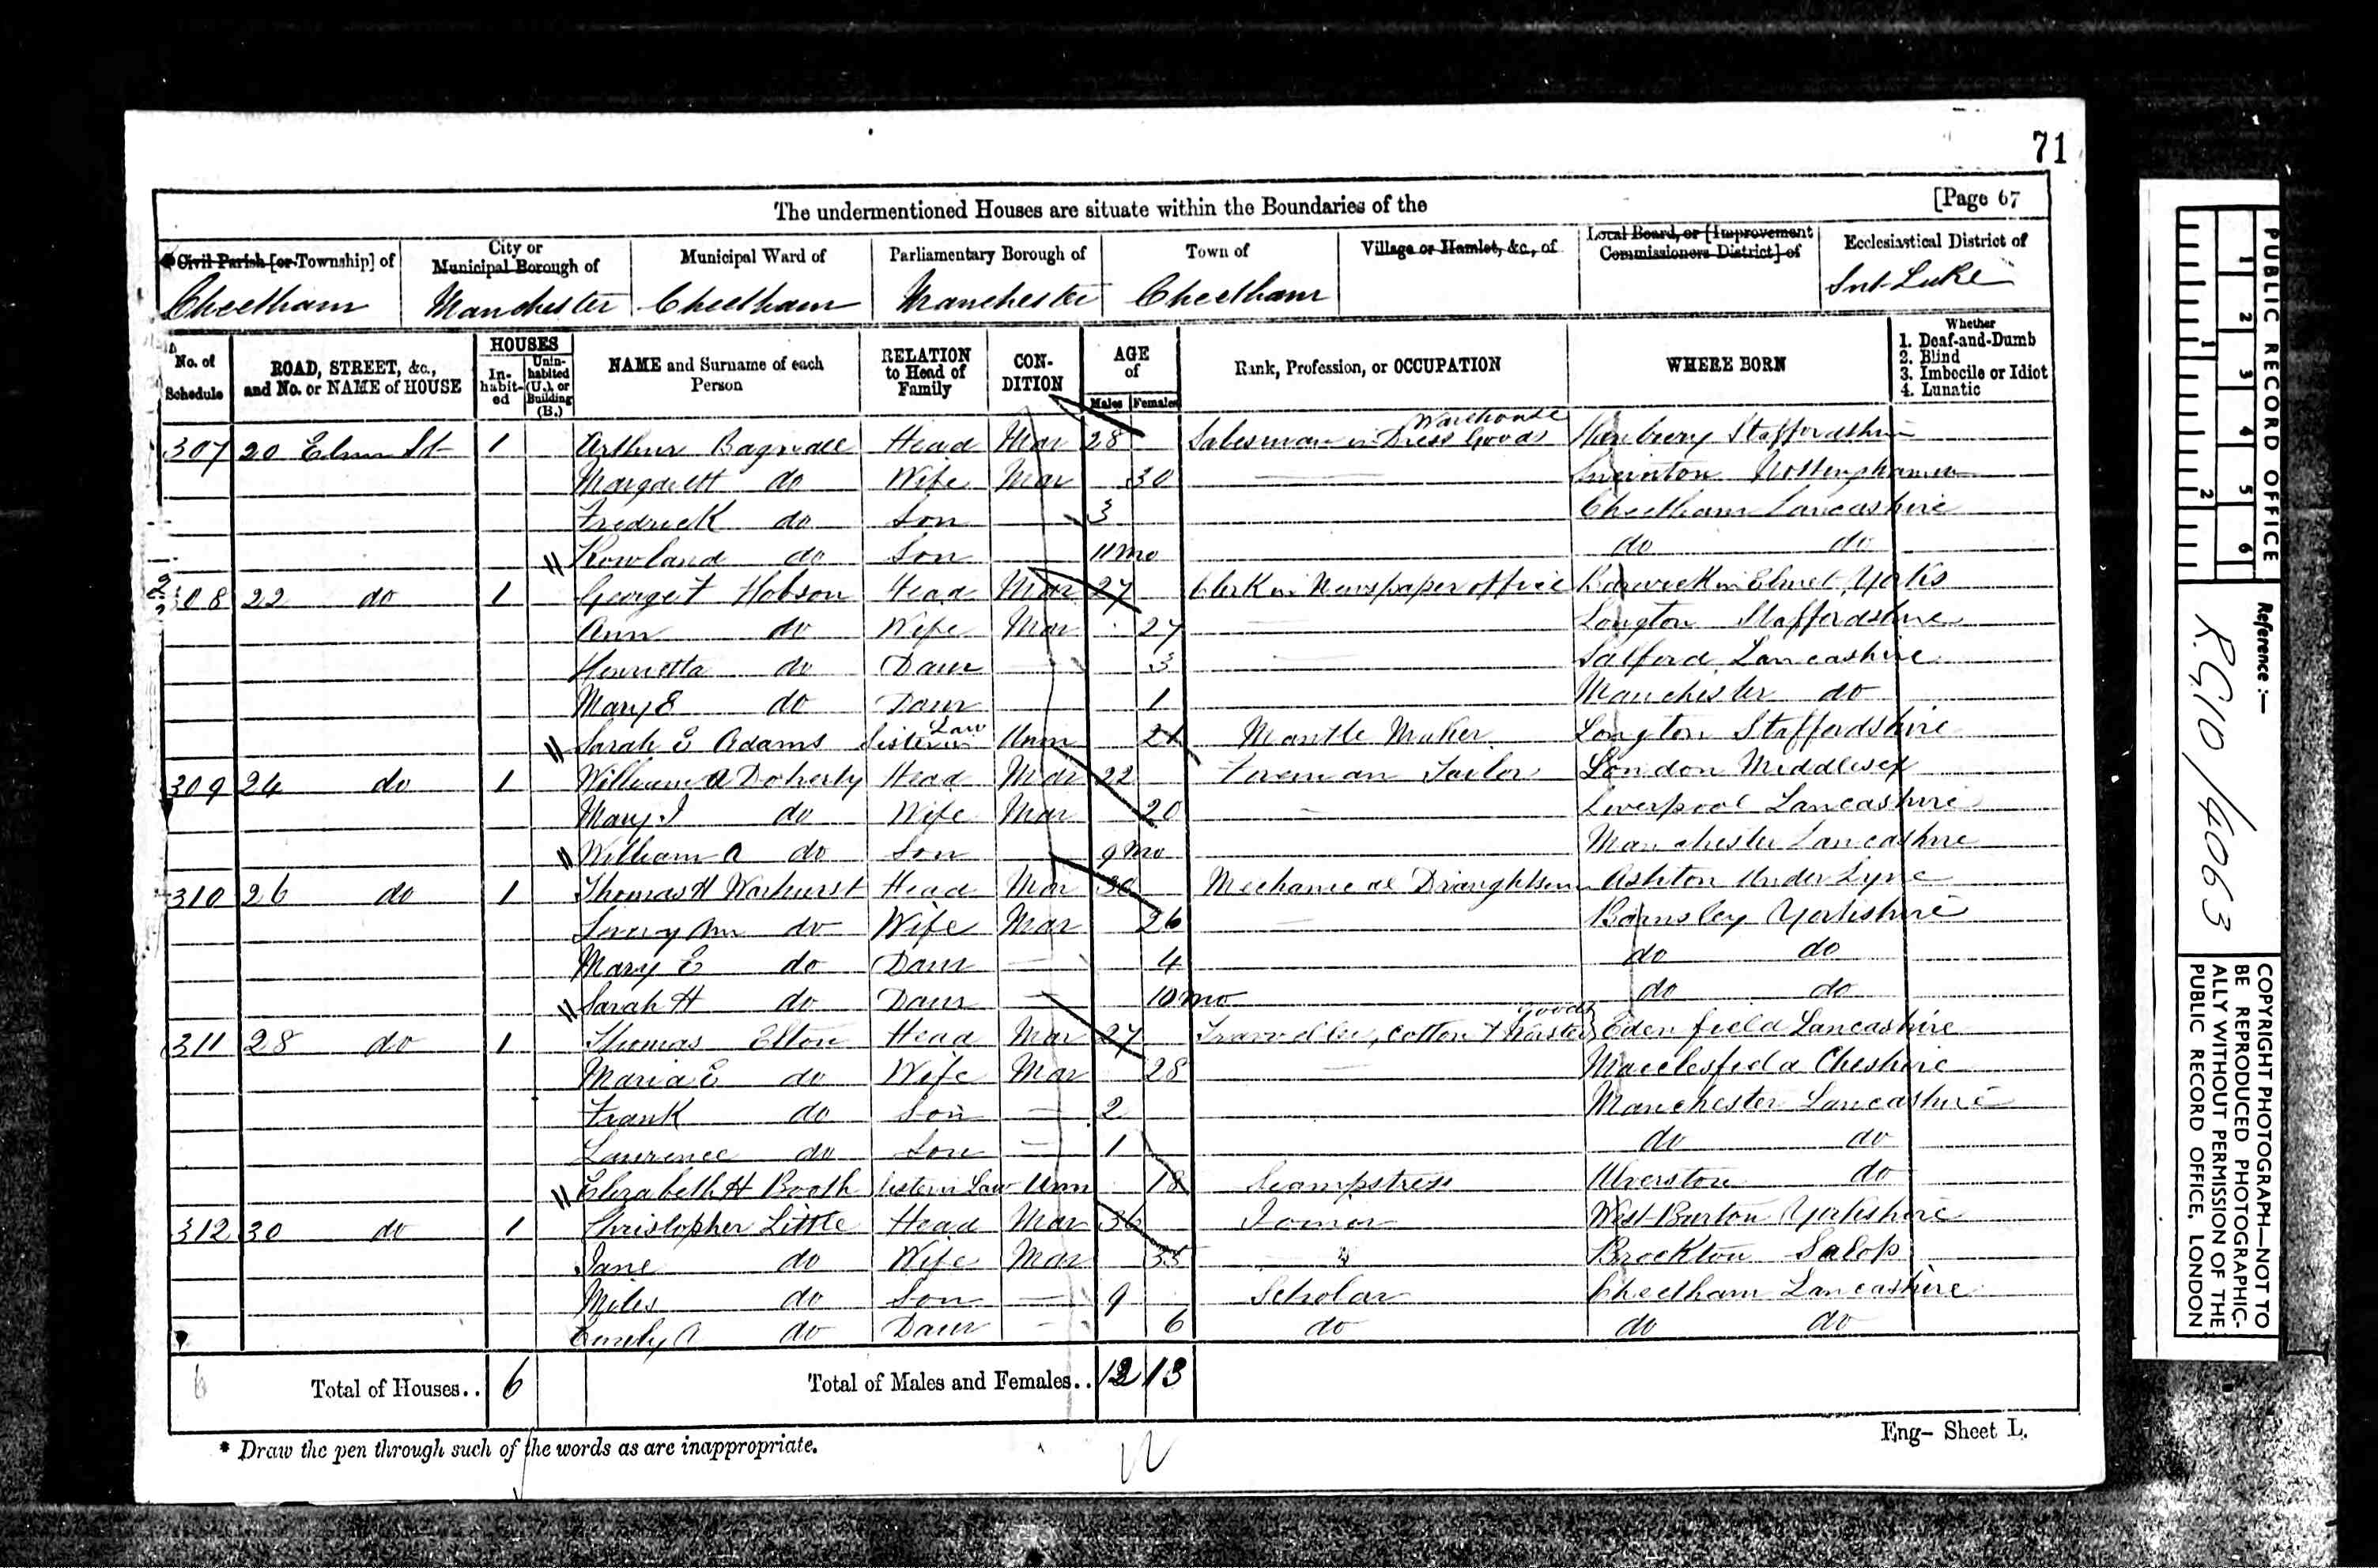 71
[Page 67
The undermentioned Houses are situate within the Boundaries of the
Civil Parish [or Township] of
City or Municipal Borough of
Municipal Ward of
Parliamentary Borough of
Town of
Village or Hamlet, &c., of
Local Board, or [Improvement Commissioners District] of
Ecclesiastical District of
Cheetham Manchester Cheetham Manchester Cheetham Snt Luke
No. of Schedule
ROAD, STREET, &c., and No. or NAME of HOUSE
HOUSES
Inhabited
Uninhabited (U.), or Building (B.)
NAME and Surname of each Person
RELATION to Head of Family
CONDITION
AGE of
Males Females
Rank, Profession, or OCCUPATION
WHERE BORN
Whether
1. Deaf-and-Dumb
2. Blind
3. Imbecile or Idiot
4. Lunatic
307 20 Elm St 1 Arthur Bagnall Head Mar 28 Salesman in Dress Goods Warehouse Hanbury Staffordshire
do Wife Mar 30 Sneinton
Fredrick do Son 3 Cheetham Lancashire
Rowland do Son 11 mo do do
308 22 do 1 George F Hobson Head Mar 27 Clerk in Newspaper office Barwick in Elmet, Yorks
Ann do Wife Mar 27 Longton Staffordshire
Henrietta do Daur 3 Salford Lancashire
Mary E do Daur 1 Manchester do
Sarah E Adams Sister in Law Unm 21 Mantle Maker Longton Staffordshire
309 24 do 1 William A Doherty Head Mar 22 Foreman Tailor London Middlesex
Mary J do Wife Mar 20 Liverpool Lancashire
William A do Son 9 mo Manchester Lancashire
310 26 do 1 Thomas H Warhurst Head Mar 30 Mechanical Draughtsman Ashton Under Lyne
do Wife Mar 26 Barnsley Yorkshire
Mary E do Daur 4 do do
Sarah H do Daur 10 mo do do
311 28 do 1 Thomas Elton Head Mar 27 Traveller, Cotton & goods Edenfield Lancashire
Maria E do Wife Mar 28 Macclesfield Cheshire
Frank do Son 2 Manchester Lancashire
Laurence do Son 1 do do
Elizabeth H Booth Sister in Law Unm 18 Seampstress Ulverston do
312 30 do 1 Christopher Little Head Mar 36 Joiner West Burton Yorkshire
Jane do Wife Mar 35 Brockton Salop
Miles do Son 9 Scholar Cheetham Lancashire
Emily A do Daur 6 do do do
6 Total of Houses.. 6 Total of Males and Females.. 12 13
* Draw the pen through such of the words as are inappropriate.
Eng- Sheet L.
12
PUBLIC RECORD OFFICE
1 2 3 4 5 6
1 2
Reference :-
R.G.10/4063
COPYRIGHT PHOTOGRAPH—NOT TO
BE REPRODUCED PHOTOGRAPHIC-
ALLY WITHOUT PERMISSION OF THE
PUBLIC RECORD OFFICE, LONDON